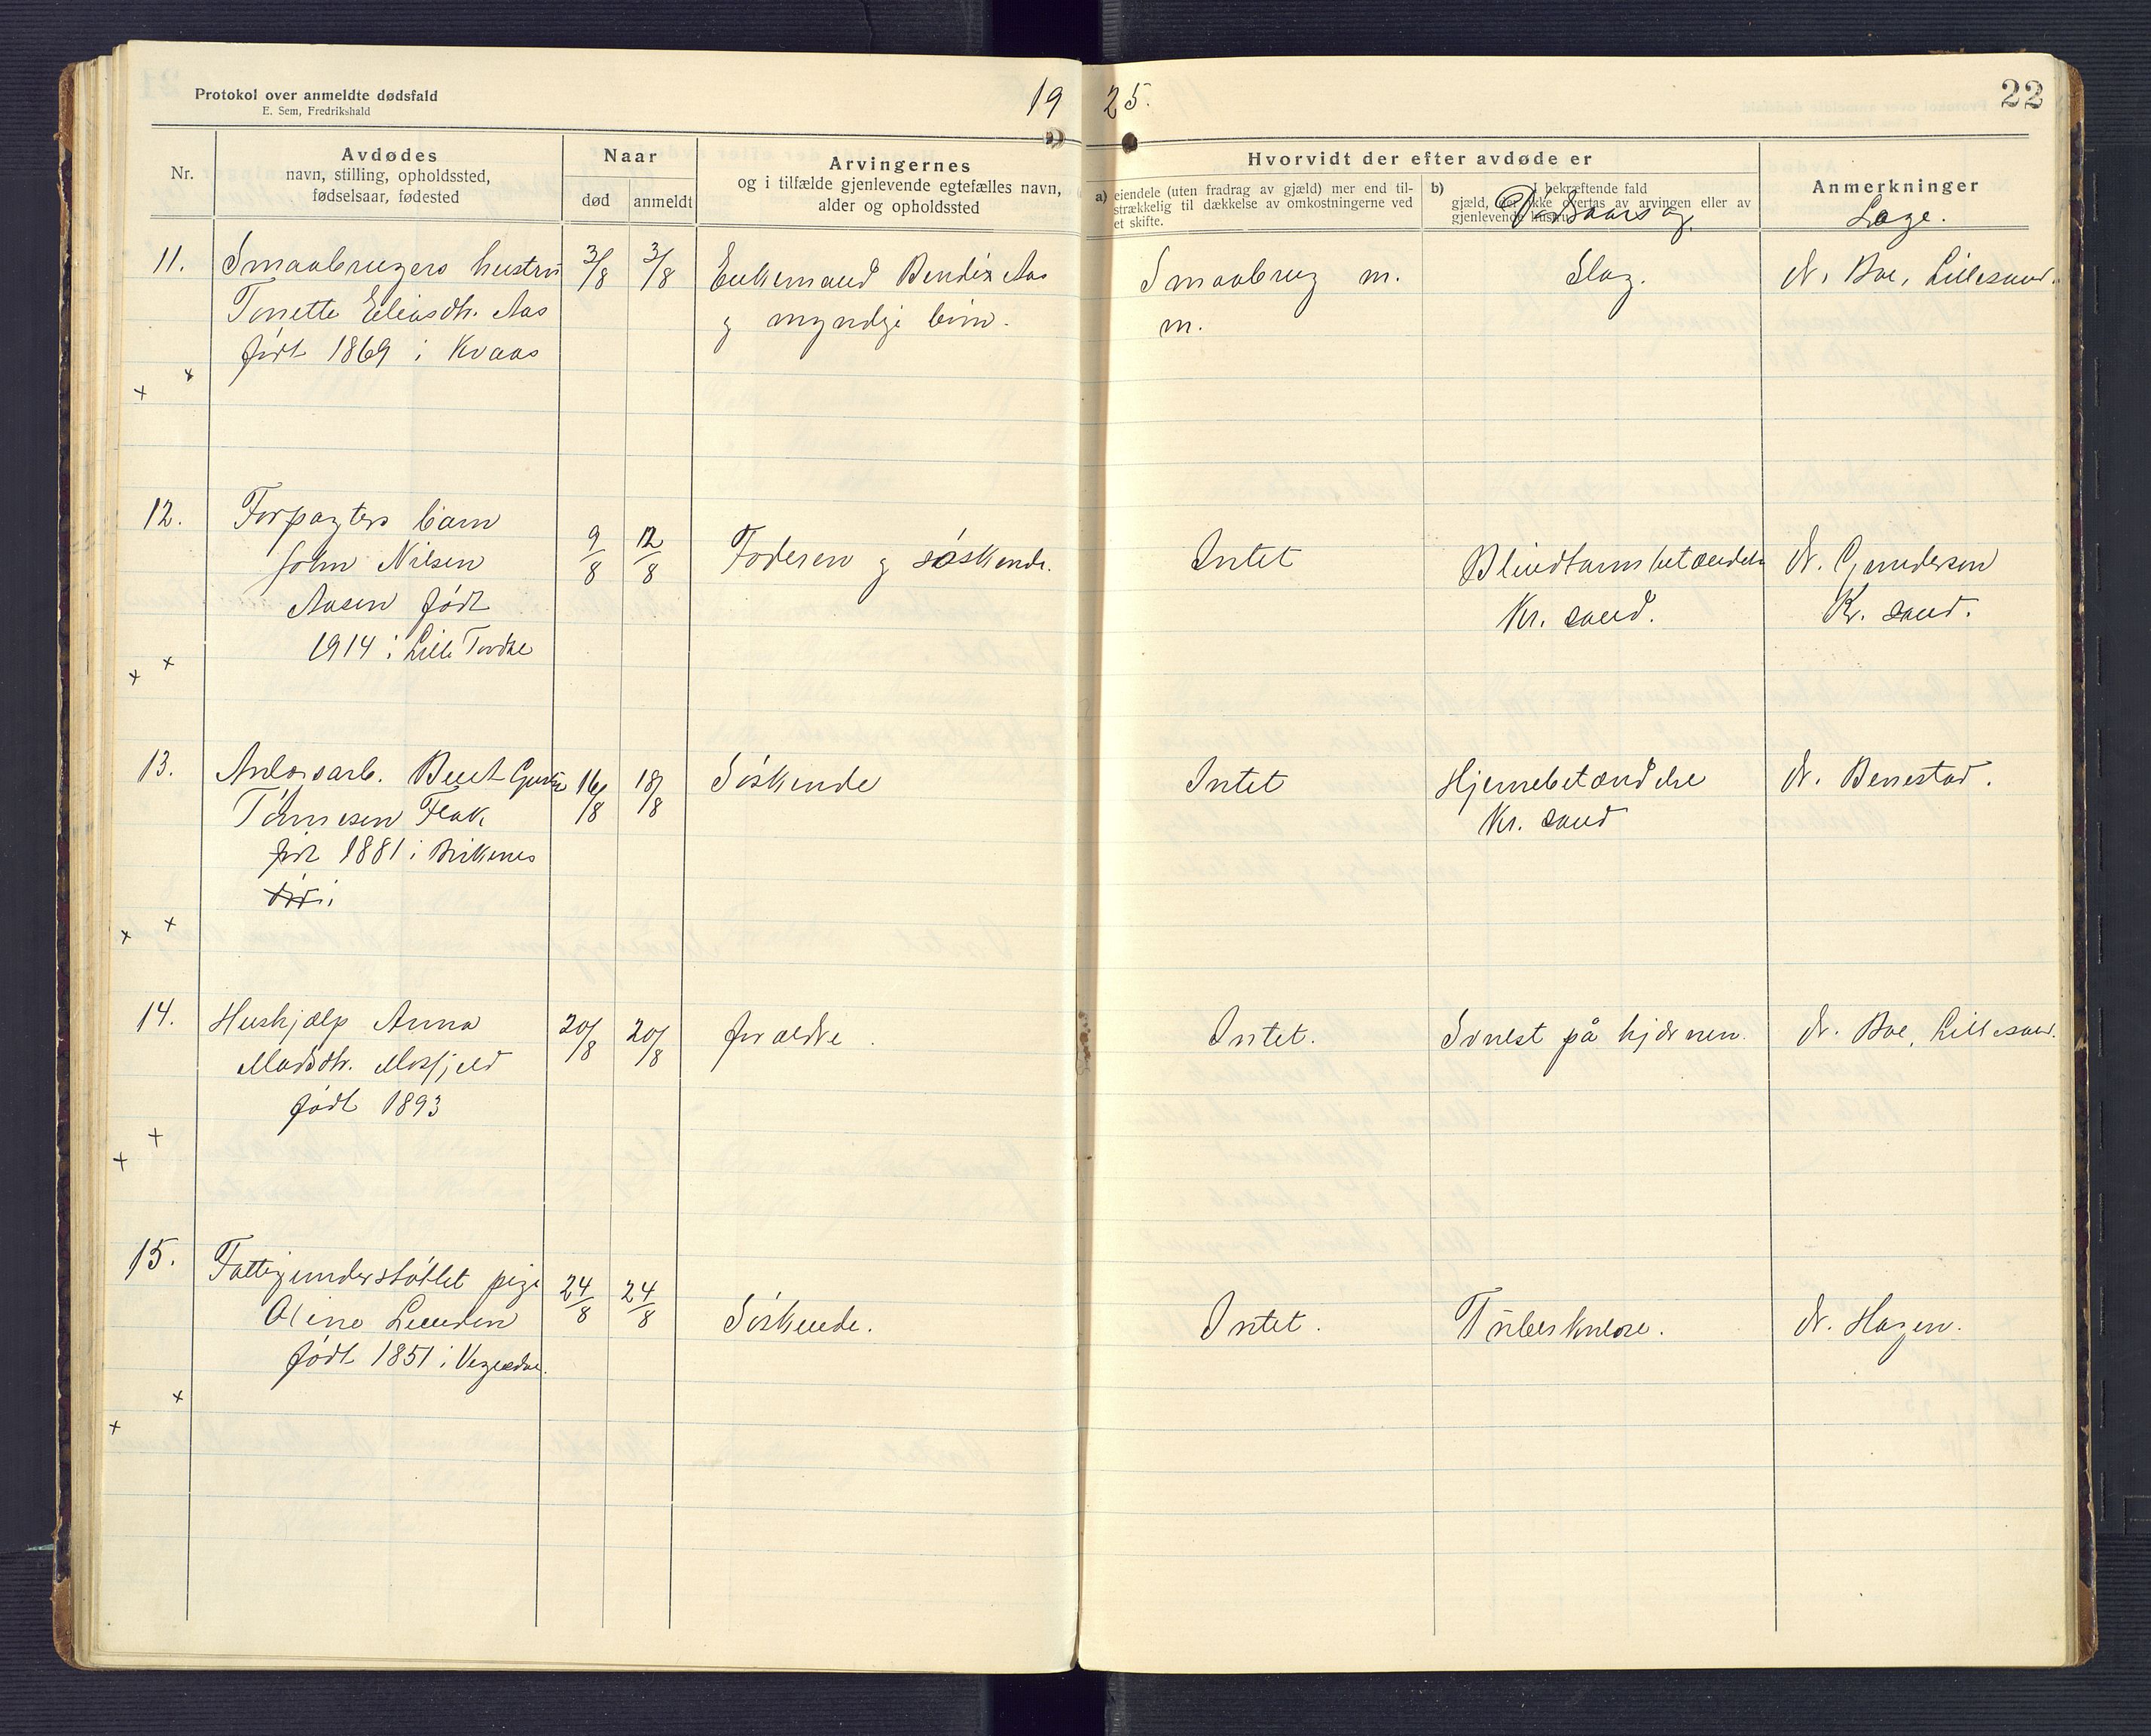 Protokol over anmeldte dødsfald
E. Sem, Fredrikshald
19 25.
22
Nr.
Avdødes
navn, stilling, opholdssted,
fødselsaar, fødested
Naar
død
anmeldt
Arvingernes
og i tilfælde gjenlevende egtefælles navn,
alder og opholdssted
Hvorvidt der efter avdøde er
a) eiendele (uten fradrag av gjæld) mer end til-
strækkelig til dækkelse av omkostningerne ved
et skifte.
b) I bekræftende fald
gjæld, der ikke overtas av arvingen eller av
gjenlevende
Dødsaarsag.
Anmerkninger
Læge.
11.
Smaabrugers hustru
Tonette Eliasdtr. Aas
født 1869 i Kvaas
3/8
3/8
Enkemand Bendix Aas
og myndige børn.
Smaabrug m.
m.
Slag.
dr. Boe, Lillesand.
12.
Forpagters barn
John Nilsen
Aasen født
1914 i Lille Tovdal
9/8
12/8
Faderen og søskende.
Intet
Blindtarmsbetændelse
Kr. sand.
dr. Gundersen
Kr. sand.
13.
Anlægsarb. Bent Gustav
Tønnesen Flak
født 1881 i Birkenes
død i
16/8
18/8
Søskende
Intet
Hjernebetændelse
Kr. sand
dr. Benestad.
14.
Hushjælp Anna
Madsdtr. Mosfjeld
født 1893
20/8
20/8
forældre.
Intet.
Svulst på hjernen.
dr. Boe, Lillesand.
15.
Fattigunderstøttet pige
Oline Lunden
født 1851 i Vegusdal.
24/8
24/8
Søskende.
Intet.
Tuberkulose.
dr. Hagen.